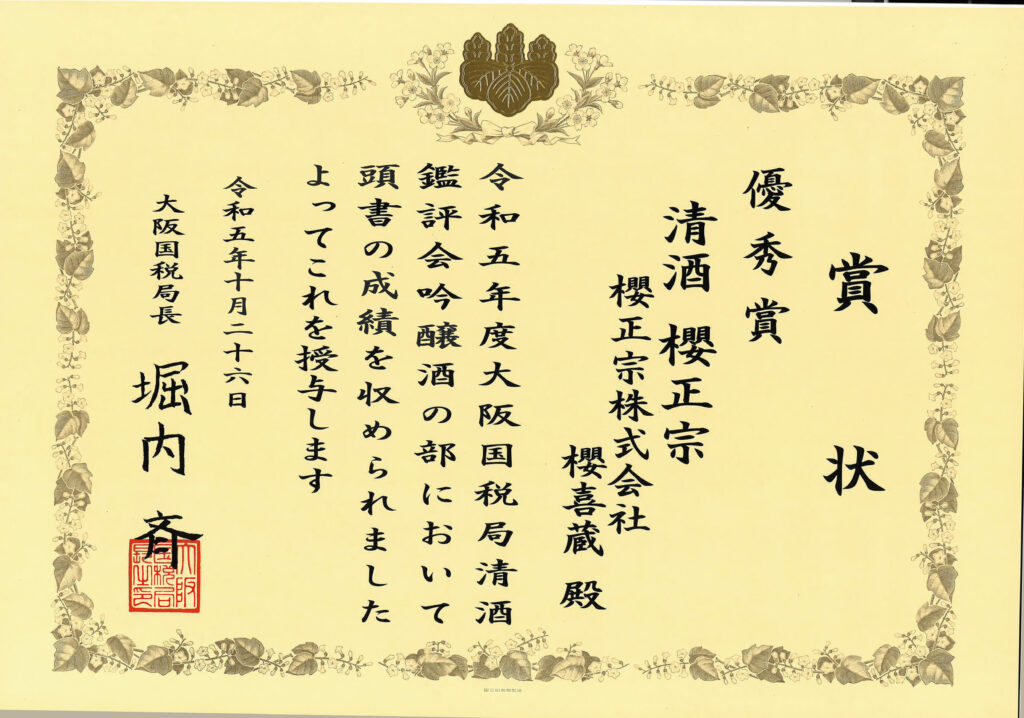 賞状
優秀賞
清酒 櫻正宗
櫻正宗株式会社
櫻喜蔵 殿
令和五年度大阪国税局清酒
鑑評会吟醸酒の部において
頭書の成績を収められました
よってこれを授与します
令和五年十月二十六日
大阪国税局長 堀内 斉